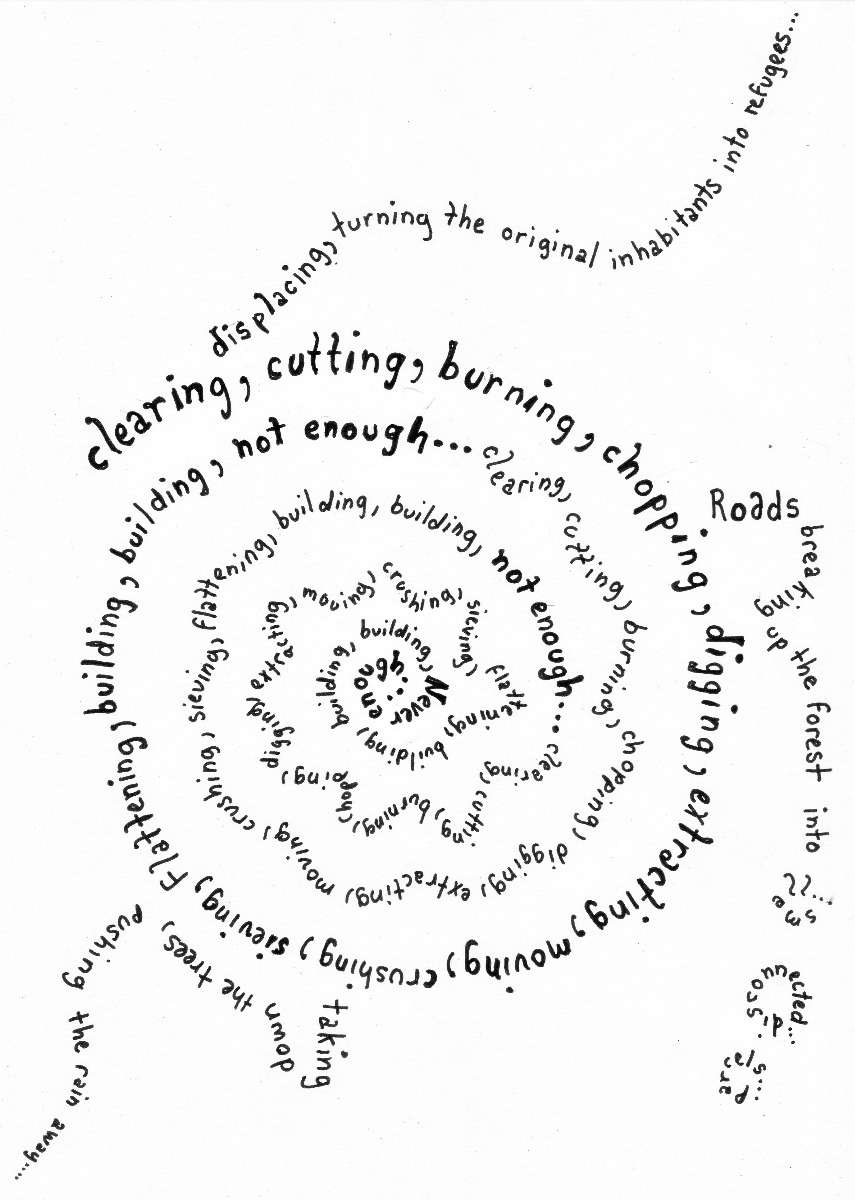 displacing, turning the original inhabitants into refugees...
clearing, cutting, burning, chopping, digging, extracting, moving, crushing, sieving, Flattening, building, building, not enough...
clearing, cutting, burning, chopping, digging, extracting, moving, crushing, sieving, flattening, building, building, not enough...
clearing, cutting, burning, chopping, digging, extracting, moving, crushing, sieving, flattening, building, building, building, Never enough...
Roads breaking up the forest into small...
disconnected...
parcels...
taking down the trees, pushing the rain away...